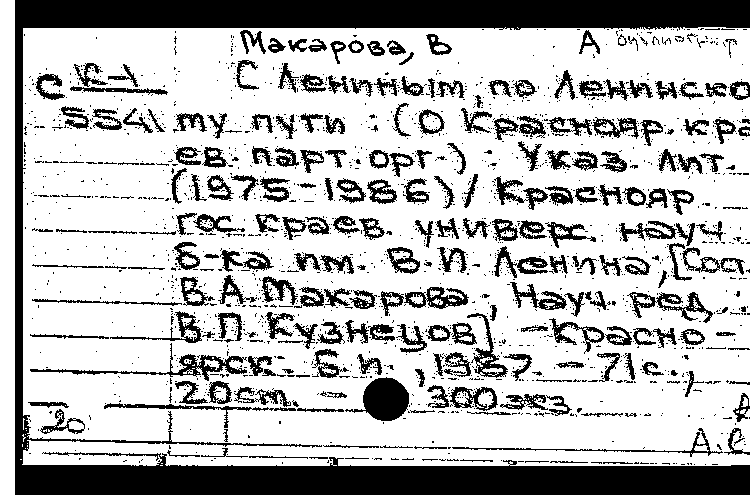 Макарова, В А библиогр
С К-1 С Лениным, по Ленинско
5541 му пути : (О Краснояр. кра
ев. парт. орг.) : Указ. лит.
(1975-1986) / Краснояр.
гос краев. универс. науч.
б-ка им. В.И. Ленина; [Сост.
В.А. Макарова ; Науч. ред. :
В.П. Кузнецов]. - Красно-
ярск : Б.и. , 1987. - 71 с.;
20 см. - 300 экз.
20
А.С